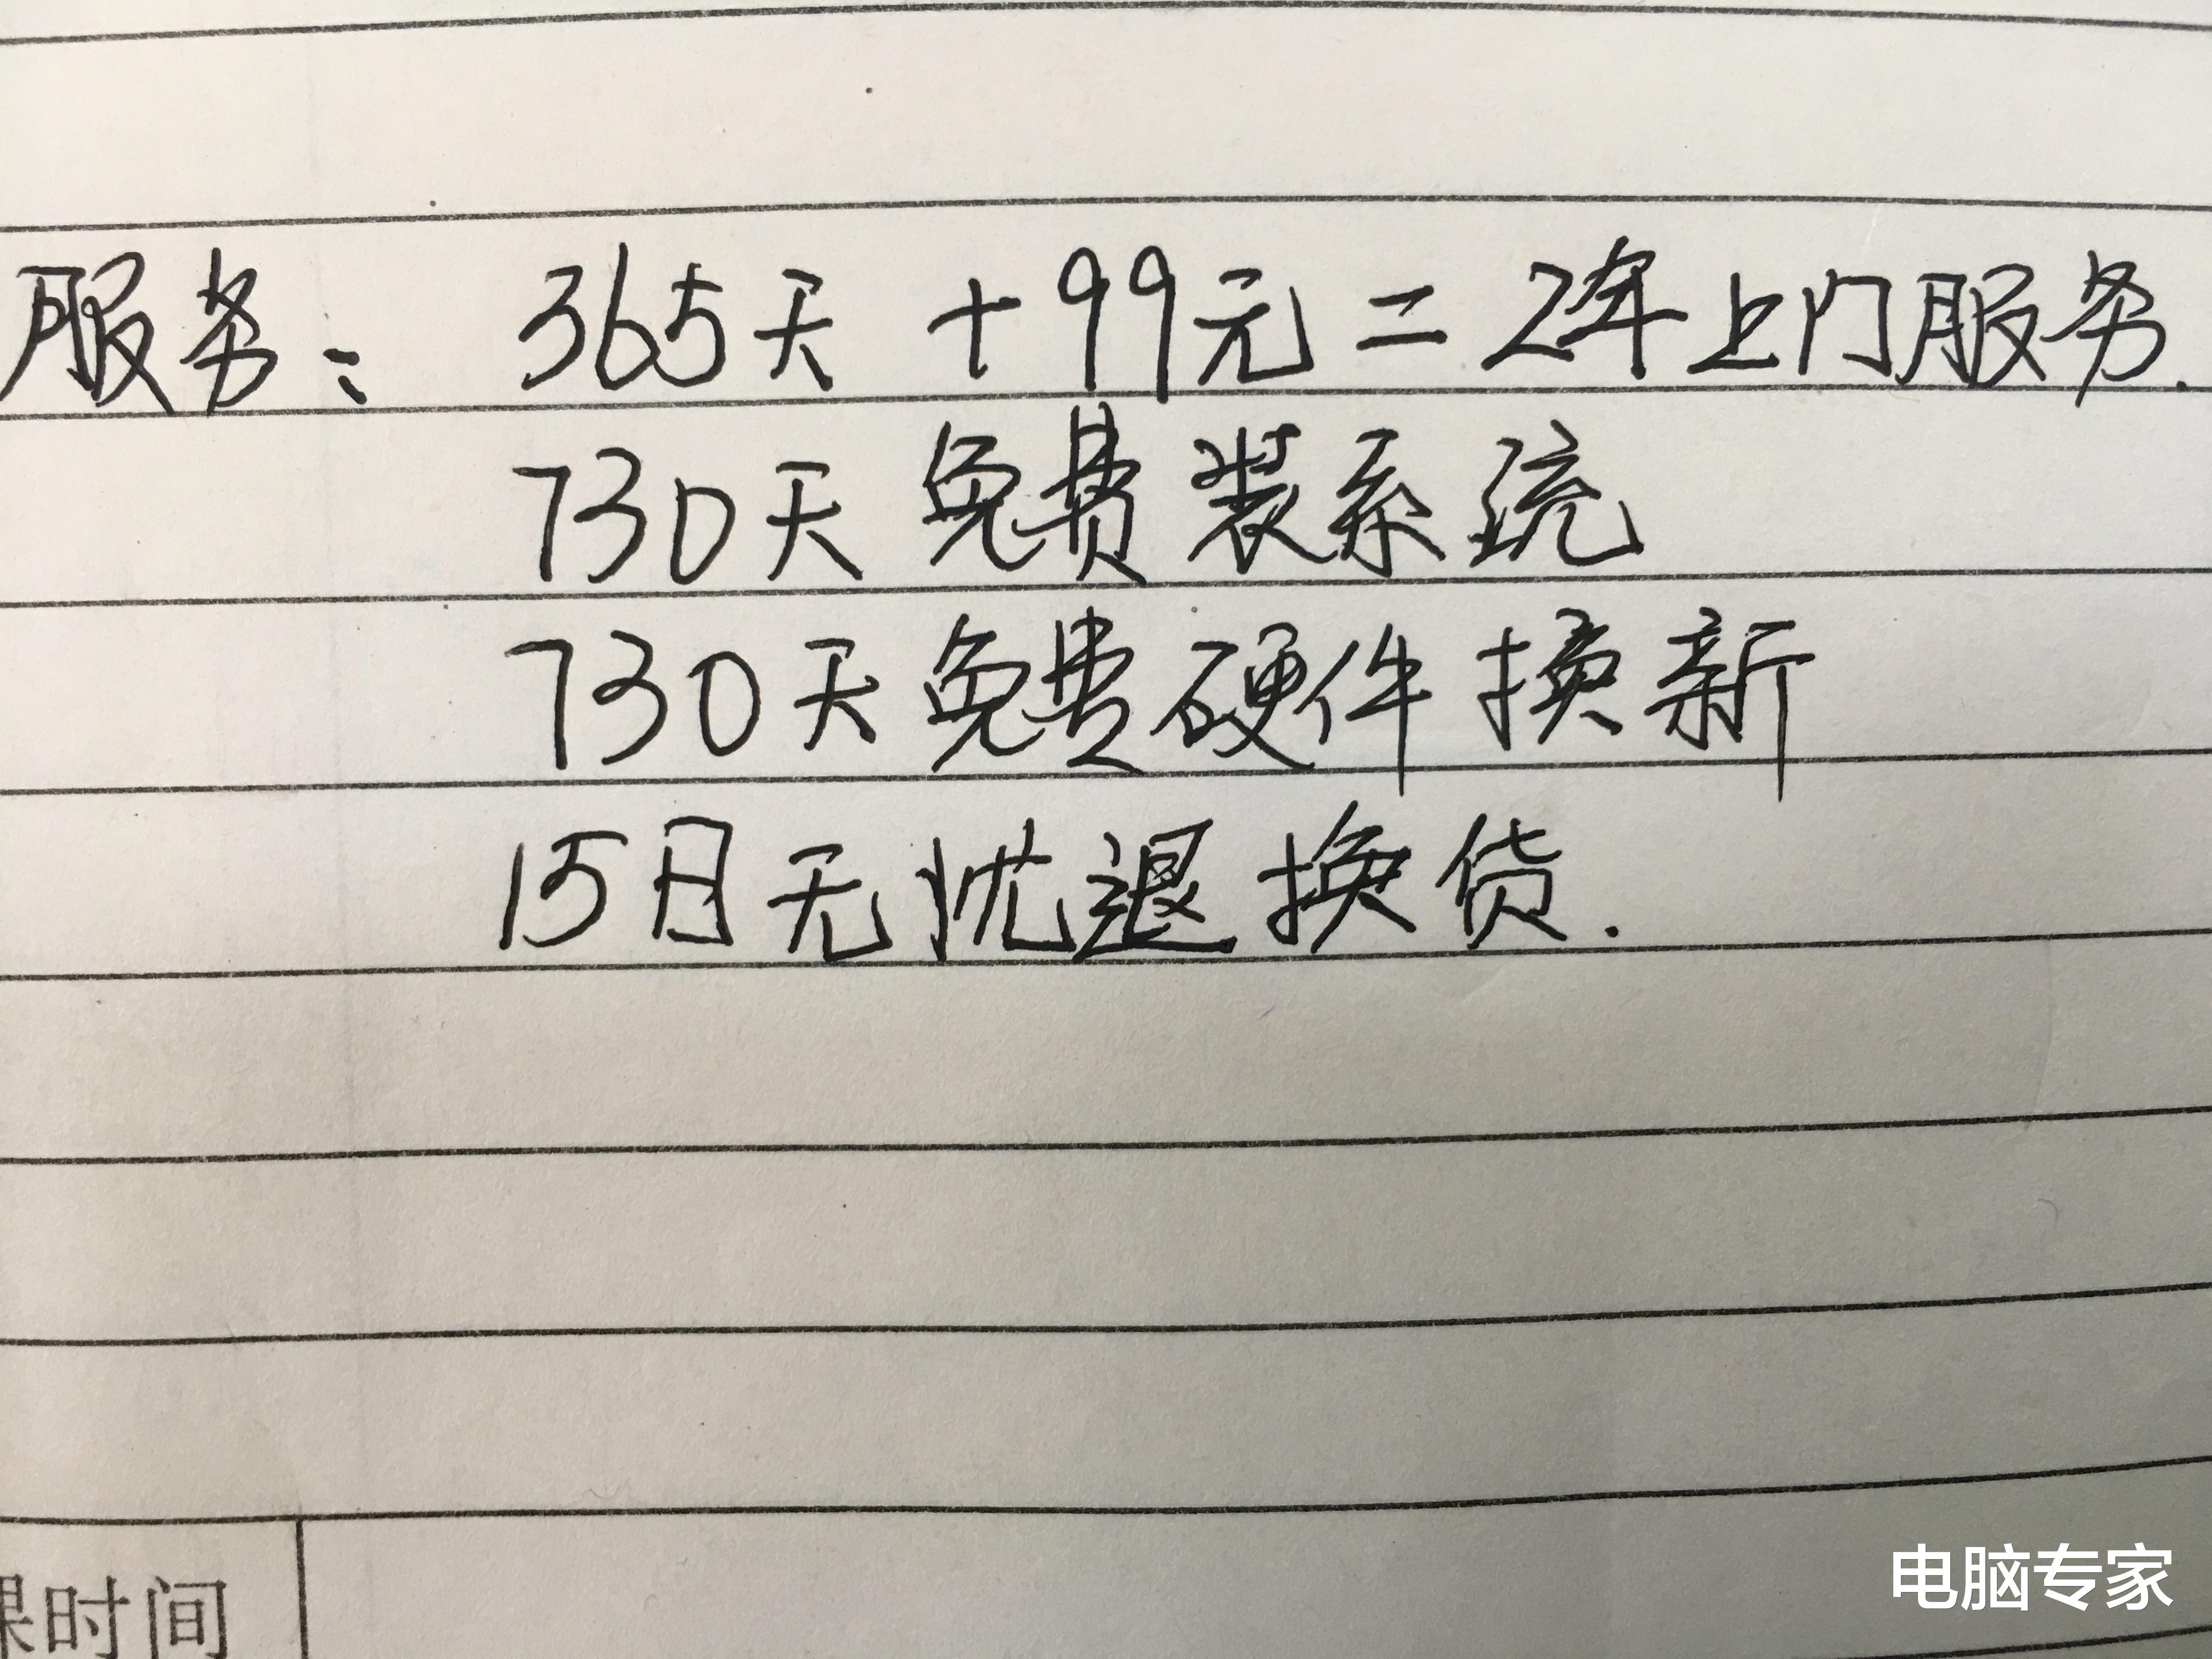 服务: 365天 +99元=2年上门服务.
730天免费装系统
730天免费硬件换新
15日无忧退换货.
课时间
电脑专家